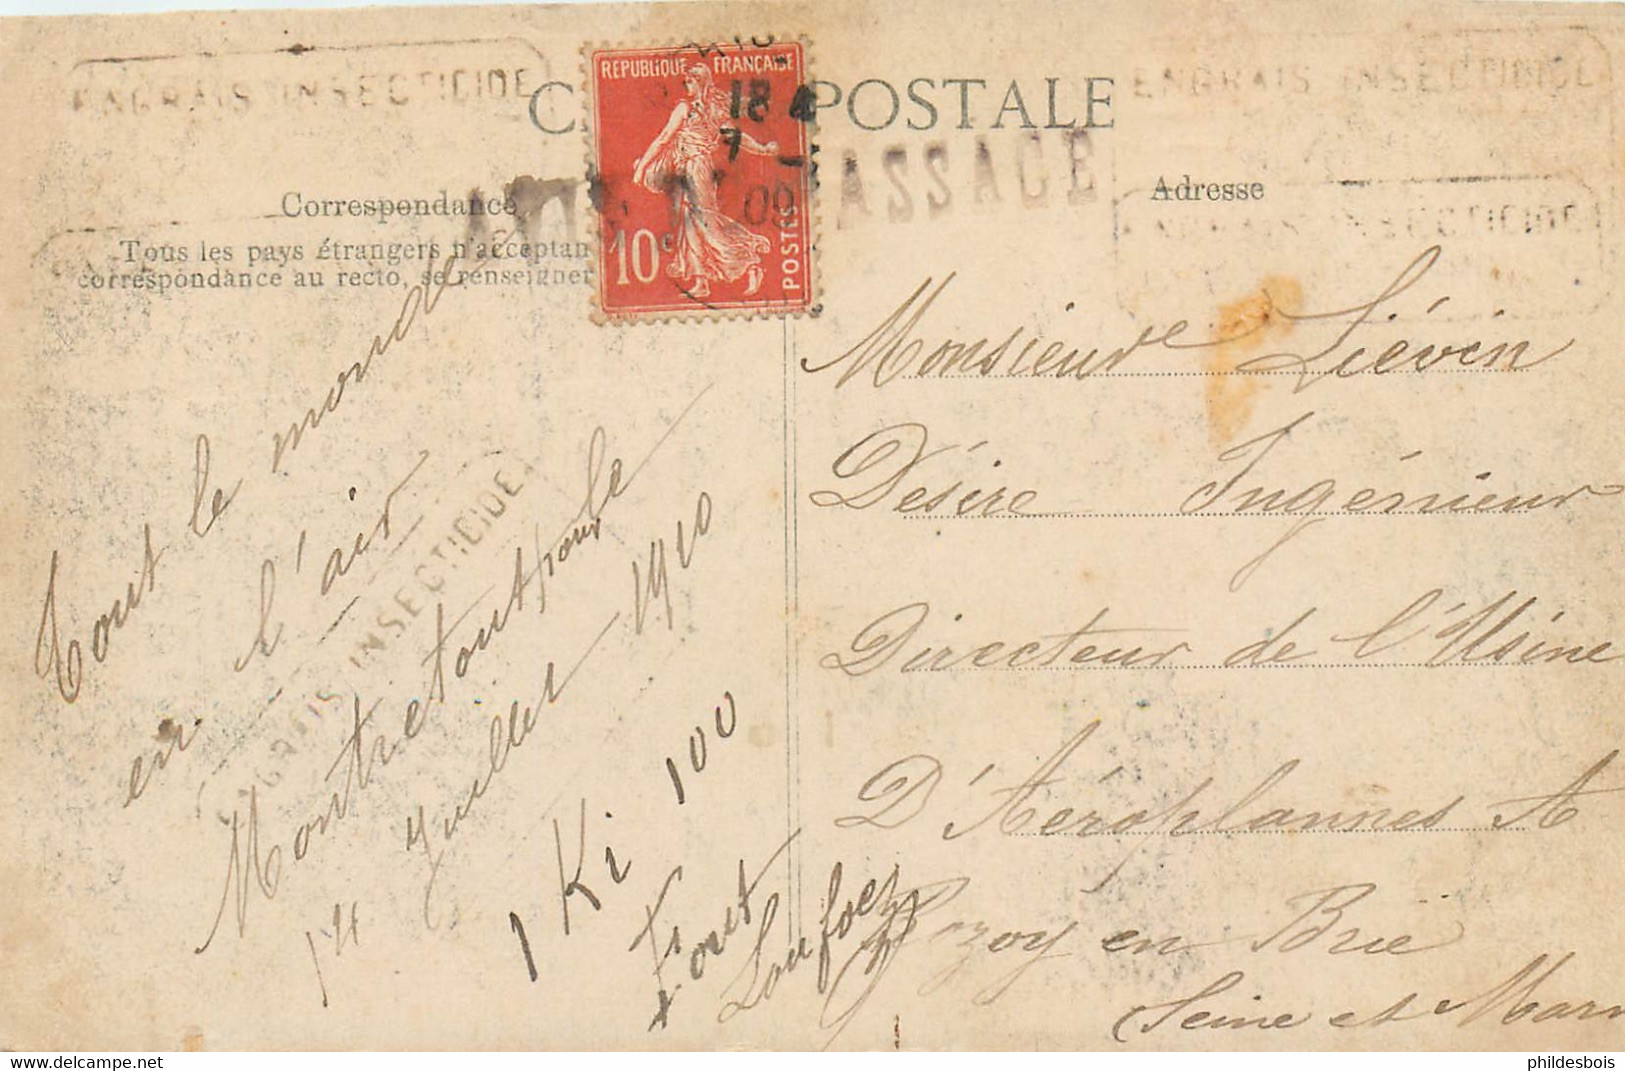 ENGRAIS INSECTICIDE
ENGRAIS INSECTICIDE
C POSTALE
REPUBLIQUE FRANÇAISE
18
7
09
10c
POSTES
ASSAGE
Correspondance
Tous les pays étrangers n'acceptan
correspondance au recto, se renseigner
Adresse
ENGRAIS INSECTICIDE
ENGRAIS INSECTICIDE
Tout le monde
en l'air
Montretout pour le
14 Juillet 1910
1 Ki 100
Monsieur Liévin
Désire Ingénieur
Directeur de l'Usine
D'Aéroplannes A
Rozoy en Brie
Seine et Marn
phildesbois